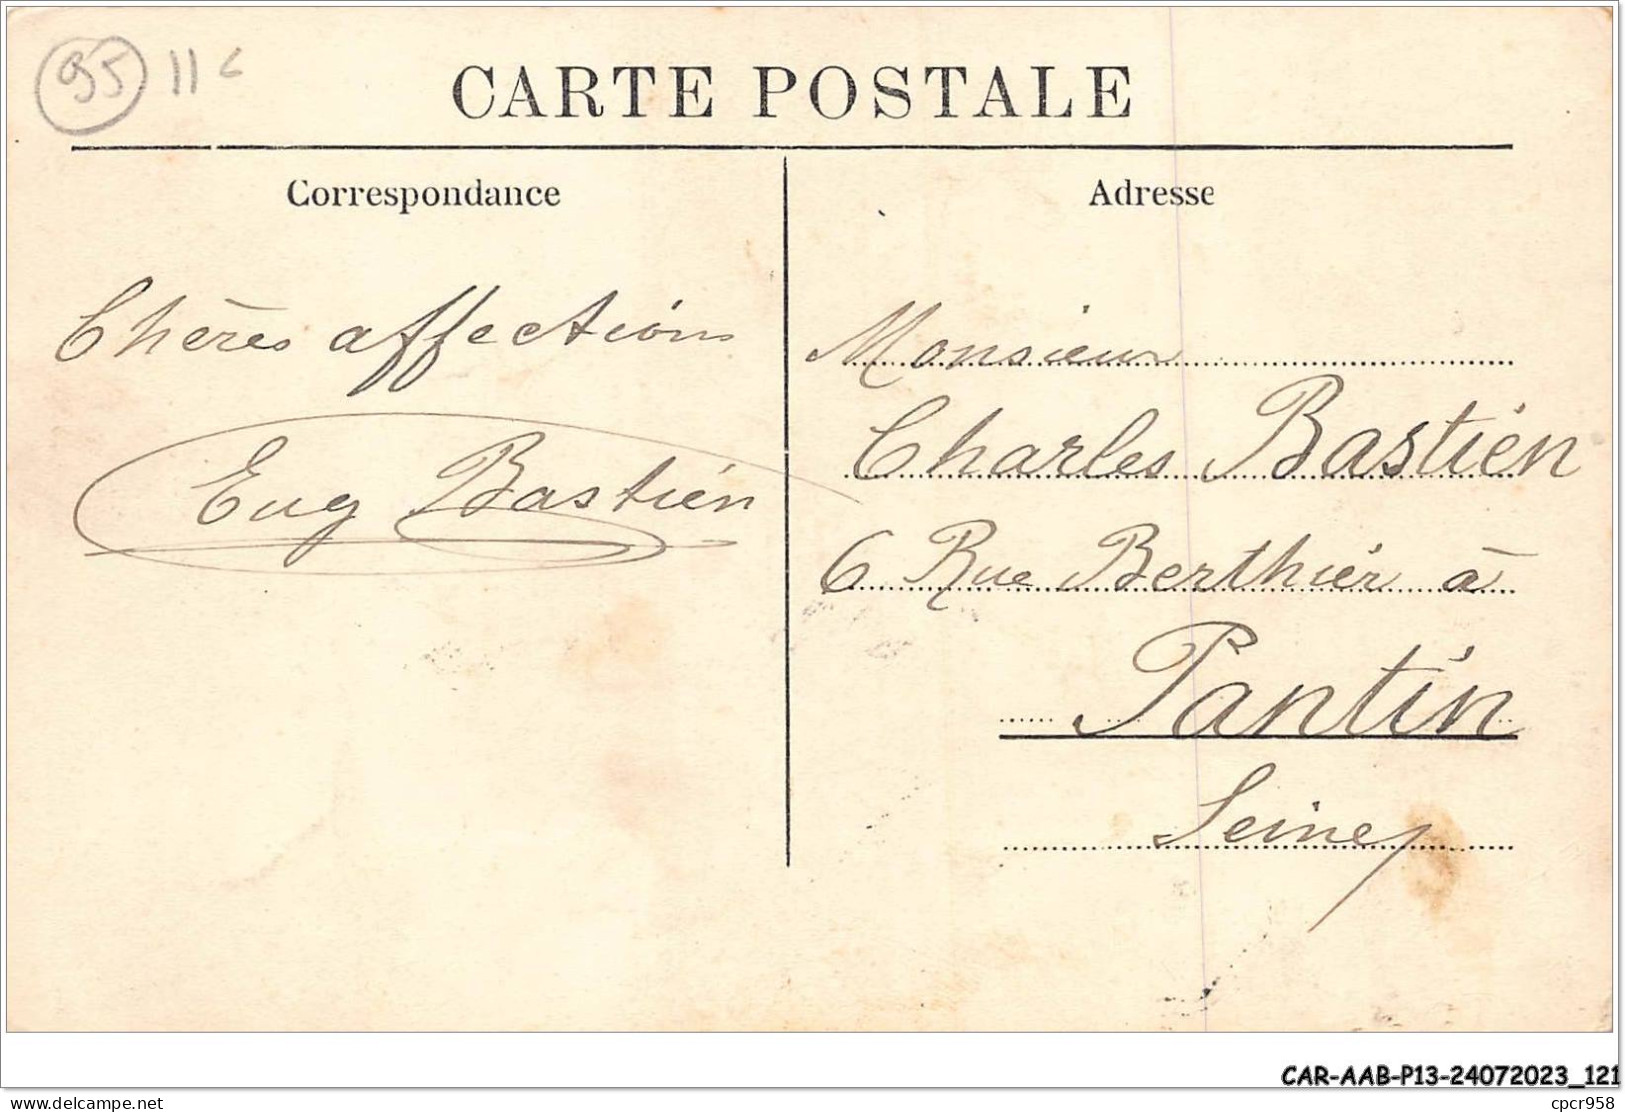 95 11 c
CARTE POSTALE
Correspondance
Adresse
Chères affections
Eug Bastien
Monsieur
Charles Bastien
6 Rue Berthier à
Pantin
Seine
CAR-AAB-P13-24072023_121
delcampe.net
cpcr958